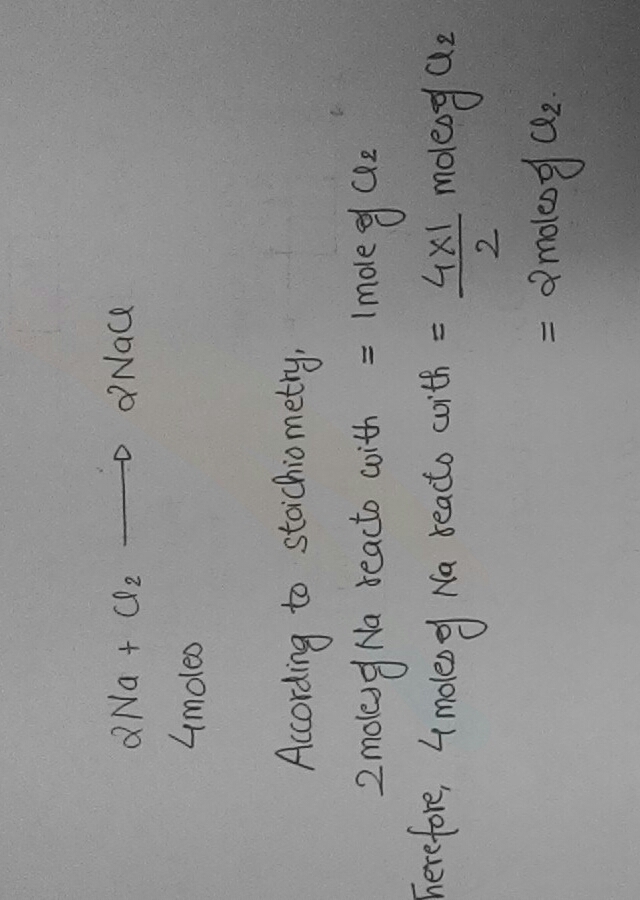 2Na + Cl2 → 2NaCl
4moles
According to stoichiometry,
2moles of Na reacts with = 1mole of Cl2
Therefore, 4moles of Na reacts with = 4×1/2 moles of Cl2
= 2moles of Cl2.